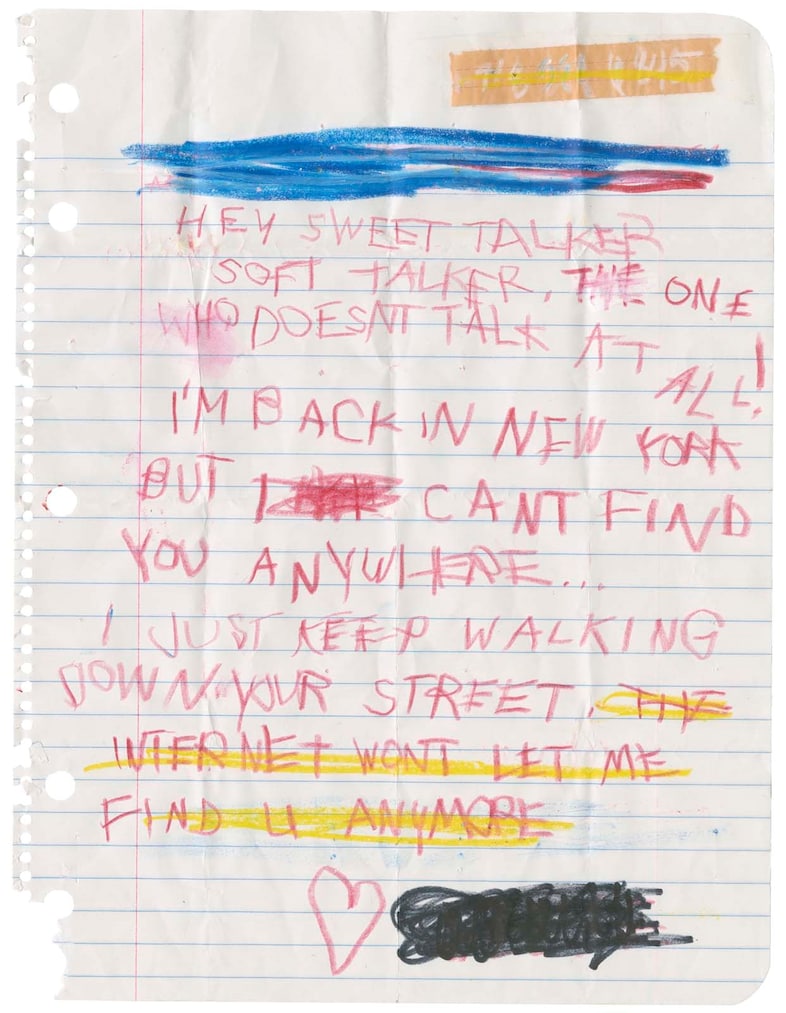 HEY SWEET TALKER
SOFT TALKER, THE ONE
WHO DOESNT TALK AT
ALL!
I'M BACK IN NEW YORK
BUT I CANT FIND
YOU ANYWHERE...
I JUST KEEP WALKING
DOWN YOUR STREET, THE
INTERNET WONT LET ME
FIND U ANYMORE